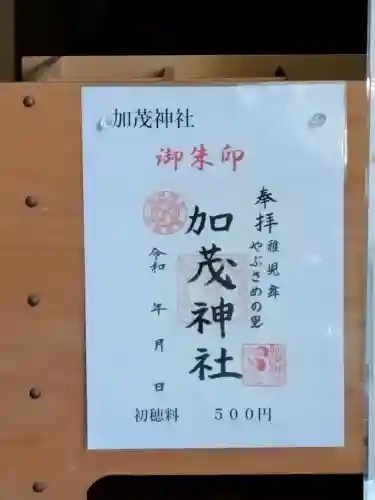 加茂神社
御朱印
奉拝
稚児舞
やぶさめの里
加茂神社
令和 年 月 日
初穂料 500円